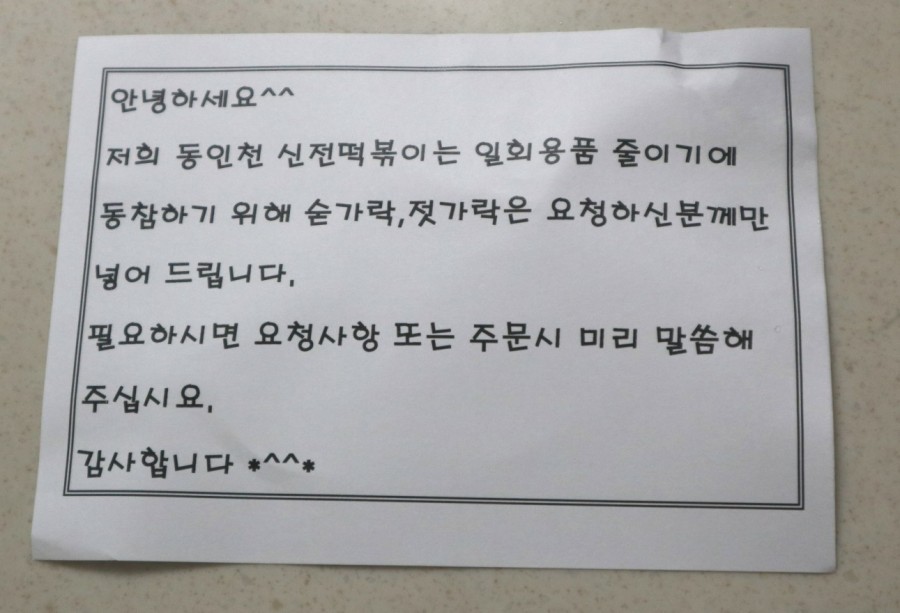 안녕하세요^^
저희 동인천 신전떡볶이는 일회용품 줄이기에
동참하기 위해 숟가락,젓가락은 요청하신분께만
넣어 드립니다.
필요하시면 요청사항 또는 주문시 미리 말씀해
주십시요.
감사합니다 *^^*